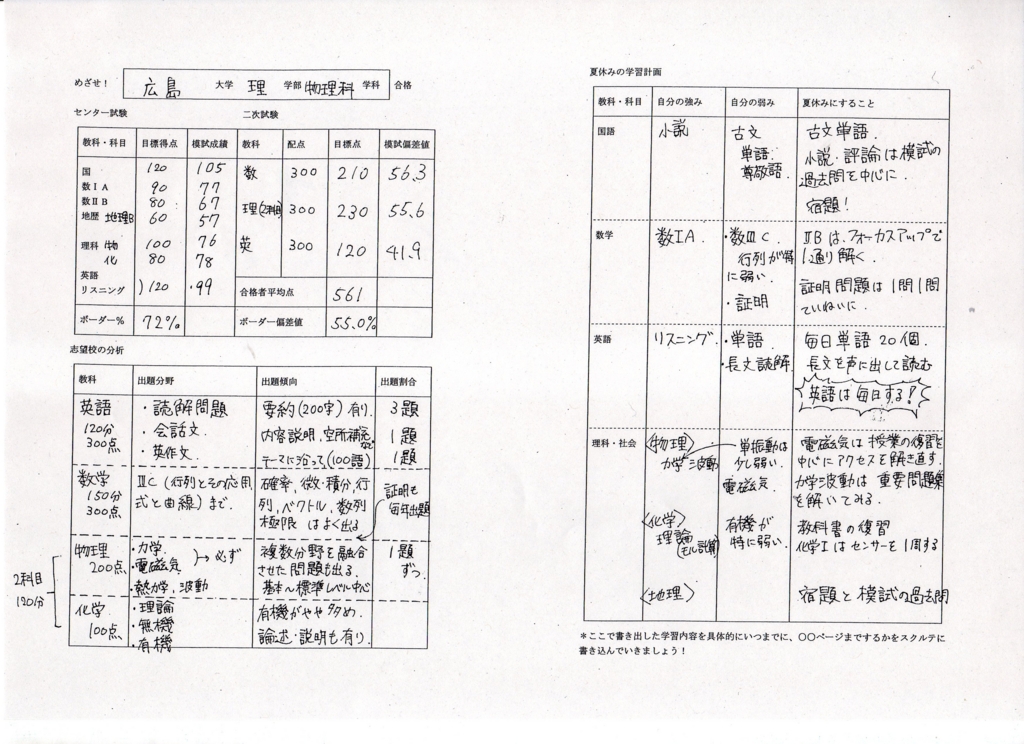 めざせ！ 広島 大学 理 学部 物理科 学科 合格
センター試験
教科・科目 目標得点 模試成績
国 120 105
数ⅠA 90 77
数ⅡB 80 67
地歴 地理B 60 57
理科 物 100 76
化 80 78
英語
リスニング )120 ・99
ボーダー％ 72%
二次試験
教科 配点 目標点 模試偏差値
数 300 210 56.3
理(2科目) 300 230 55.6
英 300 120 41.9
合格者平均点 561
ボーダー偏差値 55.0%
志望校の分析
教科 出題分野 出題傾向 出題割合
英語
120分
300点
・読解問題
・会話文.
・英作文.
要約(200字)有り.
内容説明,空所補充など
テーマに沿って(100語)
3題
1題
1題
数学
150分
300点
ⅢC (行列とその応用,
式と曲線)まで.
確率,微・積分,行
列,ベクトル,数列
極限 はよく出る
証明も
毎年出題
2科目
120分
物理
200点
・力学.
・電磁気
→必ず
・熱力学,波動
複数分野を融合
させた問題も出る.
基本〜標準レベル中心
1題
ずつ.
化学
100点
・理論
・無機
・有機
有機がやや多め.
論述・説明も有り.
夏休みの学習計画
教科・科目 自分の強み 自分の弱み 夏休みにすること
国語
小説
古文
単語.
尊敬語.
古文単語.
小説・評論は模試の
過去問を中心に.
宿題!
数学
数ⅠA.
・数ⅢC.
行列が特
に弱い.
・証明
ⅡBは、フォーカスアップで
1通り解く.
証明問題は1問1問
ていねいに.
英語
リスニング.
・単語.
・長文読解.
毎日単語20個.
長文を声に出して読む
英語は毎日する!
理科・社会
〈物理〉
力学 波動
単振動は
少し弱い.
電磁気.
電磁気は授業の復習を
中心にアクセスを解き直す.
力学波動は重要問題集
を解いてみる.
〈化学〉
理論
(モル計算)
有機が
特に弱い.
教科書の復習
化学Ⅰはセンサーを1周する
〈地理〉
宿題と模試の過去問
＊ここで書き出した学習内容を具体的にいつまでに、〇〇ページまでするかをスクルテに
書き込んでいきましょう！